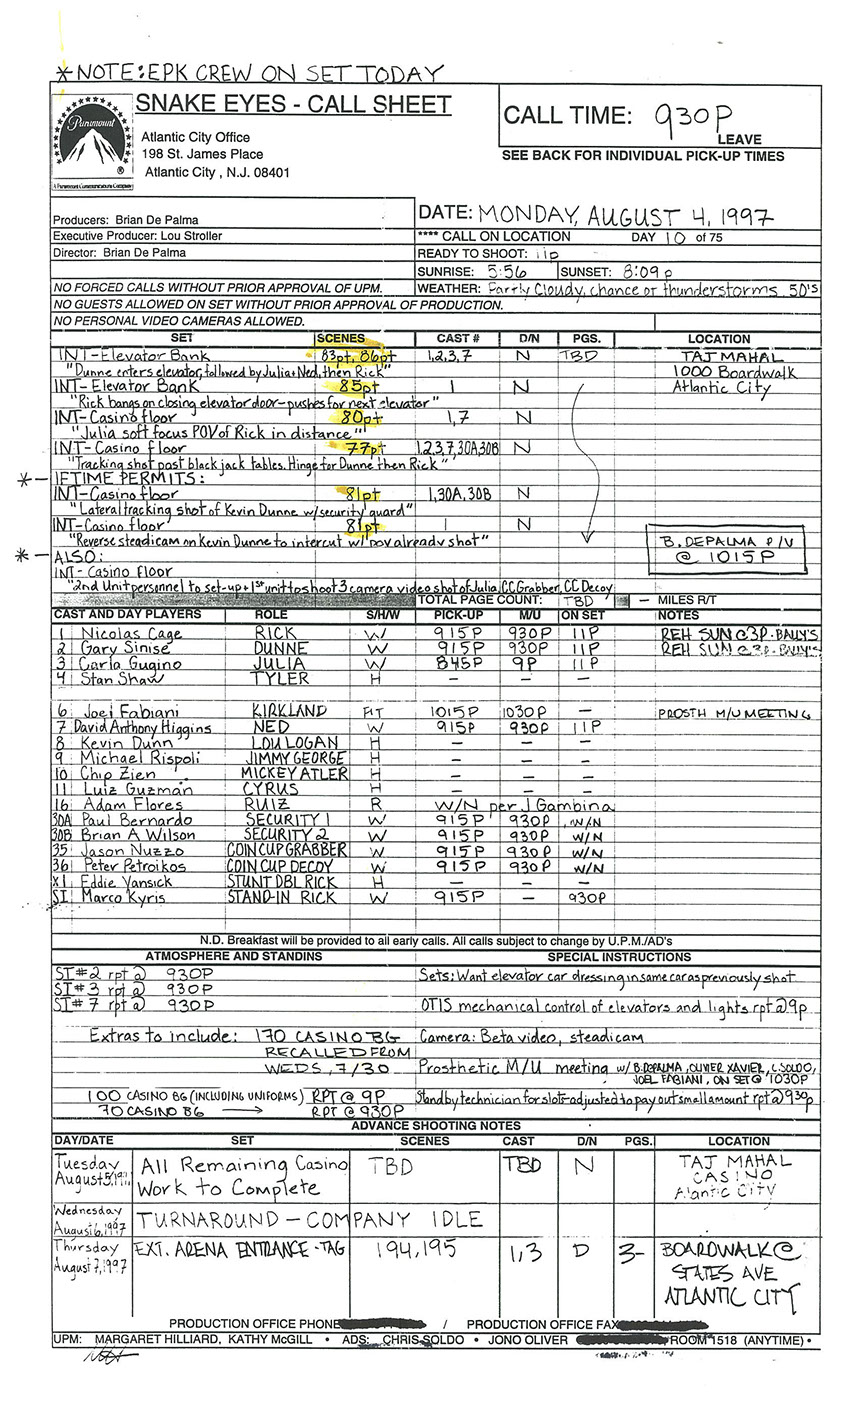 *NOTE: EPK CREW ON SET TODAY
Paramount
A Paramount Communications Company
SNAKE EYES - CALL SHEET
Atlantic City Office
198 St. James Place
Atlantic City , N.J. 08401
CALL TIME: 930P
LEAVE
SEE BACK FOR INDIVIDUAL PICK-UP TIMES
Producers: Brian De Palma
Executive Producer: Lou Stroller
Director: Brian De Palma
DATE: MONDAY, AUGUST 4, 1997
**** CALL ON LOCATION DAY 10 of 75
READY TO SHOOT: 11p
SUNRISE: 5:56 SUNSET: 8:09p
NO FORCED CALLS WITHOUT PRIOR APPROVAL OF UPM.
WEATHER: Partly Cloudy, chance of thunderstorms. 50's
NO GUESTS ALLOWED ON SET WITHOUT PRIOR APPROVAL OF PRODUCTION.
NO PERSONAL VIDEO CAMERAS ALLOWED.
SET SCENES CAST # D/N PGS. LOCATION
INT-Elevator Bank 83pt, 86pt 1,2,3,7 N TBD TAJ MAHAL
"Dunne enters elevator, followed by Julia & Ned, then Rick" 1000 Boardwalk
INT-Elevator Bank 85pt 1 N Atlantic City
"Rick bangs on closing elevator door-pushes for next elevator"
INT-Casino floor 80pt 1,7 N
"Julia soft focus POV of Rick in distance"
INT-Casino floor 77pt 1,2,3,7,30A,30B N
"Tracking shot past black jack tables. Hinge for Dunne then Rick"
*- IF TIME PERMITS:
INT-Casino floor 81pt 1,30A,30B N
"Lateral tracking shot of Kevin Dunne w/security guard"
INT-Casino floor 81pt 1 N
"Reverse steadicam on Kevin Dunne to intercut w/ pov already shot"
B. DEPALMA P/U
@ 1015P
*- ALSO:
INT-Casino floor
"2nd Unit personnel to set-up & 1st unit to shoot 3 camera video shot of Julia, CC Grabber, CC Decoy
TOTAL PAGE COUNT: TBD - MILES R/T
CAST AND DAY PLAYERS ROLE S/H/W PICK-UP M/U ON SET NOTES
1 Nicolas Cage RICK W 915P 930P 11P REH SUN @ 3P-BALLY'S
2 Gary Sinise DUNNE W 915P 930P 11P REH SUN @ 3P-BALLY'S
3 Carla Gugino JULIA W 845P 9P 11P
4 Stan Shaw TYLER H - - -
6 Joel Fabiani KIRKLAND FIT 1015P 1030P - PROSTH M/U MEETING
7 David Anthony Higgins NED W 915P 930P 11P
8 Kevin Dunn LOU LOGAN H - - -
9 Michael Rispoli JIMMY GEORGE H - - -
10 Chip Zien MICKEY ATLER H - - -
11 Luiz Guzman CYRUS H - - -
16 Adam Flores RUIZ R W/N per J Gambina
30A Paul Bernardo SECURITY 1 W 915P 930P W/N
30B Brian A Wilson SECURITY 2 W 915P 930P W/N
35 Jason Nuzzo COIN CUP GRABBER W 915P 930P W/N
36 Peter Petroikos COIN CUP DECOY W 915P 930P W/N
X1 Eddie Yansick STUNT DBL RICK H - - -
S1 Marco Kyris STAND-IN RICK W 915P - 930P
N.D. Breakfast will be provided to all early calls. All calls subject to change by U.P.M./AD's
ATMOSPHERE AND STANDINS SPECIAL INSTRUCTIONS
SI#2 rpt @ 930P Sets: Want elevator car dressing in same car as previously shot
SI#3 rpt @ 930P
SI#7 rpt @ 930P OTIS mechanical control of elevators and lights rpt @ 9p
Extras to include: 170 CASINO BG Camera: Beta video, steadicam
RECALLED FROM
WEDS, 7/30 Prosthetic M/U meeting w/ B. DEPALMA, OLIVIER XAVIER, C. SOLDO,
JOEL FABIANI, ON SET @ 1030P
100 CASINO BG (INCLUDING UNIFORMS) RPT @ 9P Standby technician for slots-adjusted to pay out small amount rpt @ 930p
70 CASINO BG → RPT @ 930P
ADVANCE SHOOTING NOTES
DAY/DATE SET SCENES CAST D/N PGS. LOCATION
Tuesday August 5, 1997 All Remaining Casino Work to Complete TBD TBD N TAJ MAHAL CASINO Atlantic City
Wednesday August 6, 1997 TURNAROUND - COMPANY IDLE
Thursday August 7, 1997 EXT. ARENA ENTRANCE-TAG 194, 195 1,3 D 3- BOARDWALK @ STATES AVE ATLANTIC CITY
PRODUCTION OFFICE PHONE / PRODUCTION OFFICE FAX
UPM: MARGARET HILLIARD, KATHY McGILL • ADS: CHRIS SOLDO • JONO OLIVER ROOM 1518 (ANYTIME) •